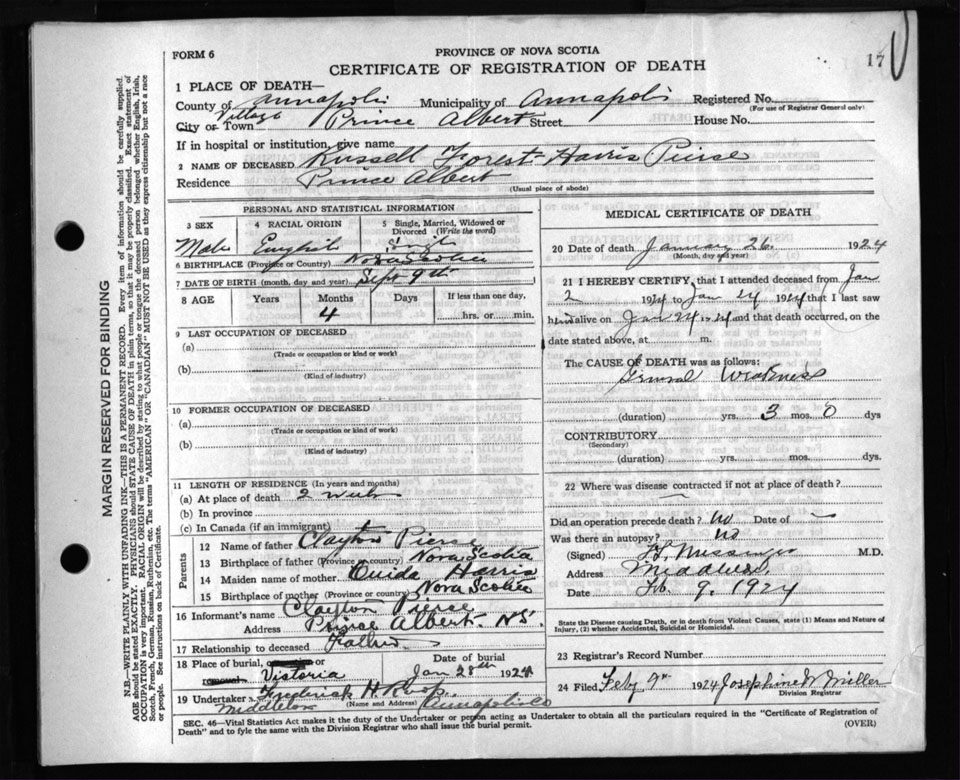 FORM 6
PROVINCE OF NOVA SCOTIA
CERTIFICATE OF REGISTRATION OF DEATH
17
1 PLACE OF DEATH—
County of Annapolis Municipality of Annapolis Registered No.
(For use of Registrar General only)
Village
City or Town Prince Albert Street House No.
If in hospital or institution, give name
2 NAME OF DECEASED Russell Forest Harris Pierse
Residence Prince Albert
(Usual place of abode)
PERSONAL AND STATISTICAL INFORMATION
3 SEX 4 RACIAL ORIGIN 5 Single, Married, Widowed or Divorced (Write the word)
Male English Single
6 BIRTHPLACE (Province or Country) Nova Scotia
7 DATE OF BIRTH (month, day and year) Sept 9th
8 AGE Years Months Days If less than one day,
4 hrs. or min.
9 LAST OCCUPATION OF DECEASED
(a)
(Trade or occupation or kind of work)
(b)
(Kind of industry)
10 FORMER OCCUPATION OF DECEASED
(a)
(Trade or occupation or kind of work)
(b)
(Kind of industry)
11 LENGTH OF RESIDENCE (In years and months)
(a) At place of death 2 weeks
(b) In province
(c) In Canada (if an immigrant)
Parents
12 Name of father Clayton Pierse
13 Birthplace of father (Province or country) Nova Scotia
14 Maiden name of mother Ouida Harris
15 Birthplace of mother (Province or country) Nova Scotia
16 Informant's name Clayton Pierce
Address Prince Albert N S.
17 Relationship to deceased Father
18 Place of burial, or Date of burial
Victoria Jan 28th 1924
19 Undertaker Frederick H Roop
(Name and Address)
Middleton Annapolis Co
MEDICAL CERTIFICATE OF DEATH
20 Date of death January 26. 1924
(Month, day and year)
21 I HEREBY CERTIFY, that I attended deceased from Jan
2 1924 to Jan 24 1924 that I last saw
him alive on Jan 24 1924 and that death occurred, on the
date stated above, at m.
The CAUSE OF DEATH was as follows:
General Weakness
(duration) yrs. 3 mos. 0 dys
CONTRIBUTORY
(Secondary)
(duration) yrs. mos. dys.
22 Where was disease contracted if not at place of death?
Did an operation precede death? No Date of —
Was there an autopsy? No
(Signed) Messinger M.D.
Address Middleton
Date Feb. 9. 1924
State the Disease causing Death, or in death from Violent Causes, state (1) Means and Nature of Injury, (2) whether Accidental, Suicidal or Homicidal.
23 Registrar's Record Number
24 Filed Feby 9th 1924 Josephine W Miller
Division Registrar
SEC. 46—Vital Statistics Act makes it the duty of the Undertaker or person acting as Undertaker to obtain all the particulars required in the "Certificate of Registration of
Death" and to fyle the same with the Division Registrar who shall issue the burial permit. (OVER)
MARGIN RESERVED FOR BINDING
N.B.—WRITE PLAINLY WITH UNFADING INK—THIS IS A PERMANENT RECORD. Every item of information should be carefully supplied.
AGE should be stated EXACTLY. PHYSICIANS should STATE CAUSE OF DEATH in plain terms, so that it may be properly classified. Exact statement of
OCCUPATION is very important. RACIAL ORIGIN will be described by stating to what people or tongue the deceased person belonged whether English, Irish,
Scotch, French, German, Russian, Ruthenian, etc. The terms "AMERICAN" OR "CANADIAN" MUST NOT BE USED as they express citizenship but not a race
or people. See instructions on back of Certificate.